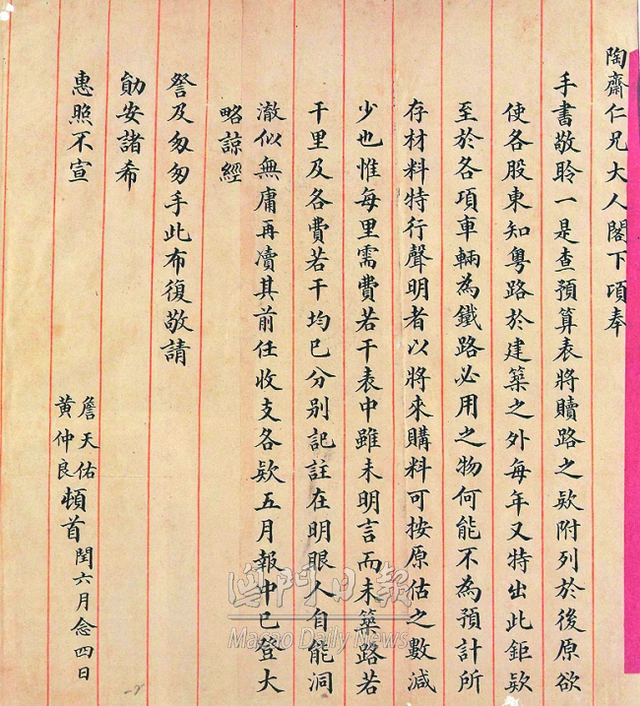 陶齋仁兄大人閣下頃奉
手書敬聆一是查預算表將贖路之欵附列於後原欲
使各股東知粵路於建築之外每年又特出此鉅欵
至於各項車輛為鐵路必用之物何能不為預計所
存材料特行聲明者以將來購料可按原估之數減
少也惟每里需費若干表中雖未明言而未築路若
干里及各費若干均已分別記註在明眼人自能洞
澈似無庸再凟其前任收支各欵五月報中已登大
略諒經
詧及匆匆手此布復敬請
勛安諸希
惠照不宣
詹天佑
黃仲良 頓首 閏六月念四日
澳門日報
Macao Daily News